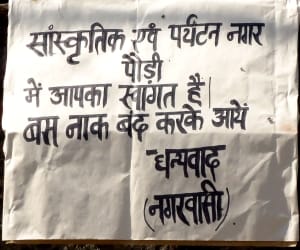 सांस्कृतिक एवं पर्यटन नगर
पौड़ी
में आपका स्वागत है।
बस नाक बंद करके आयें
धन्यवाद
(नगरवासी)